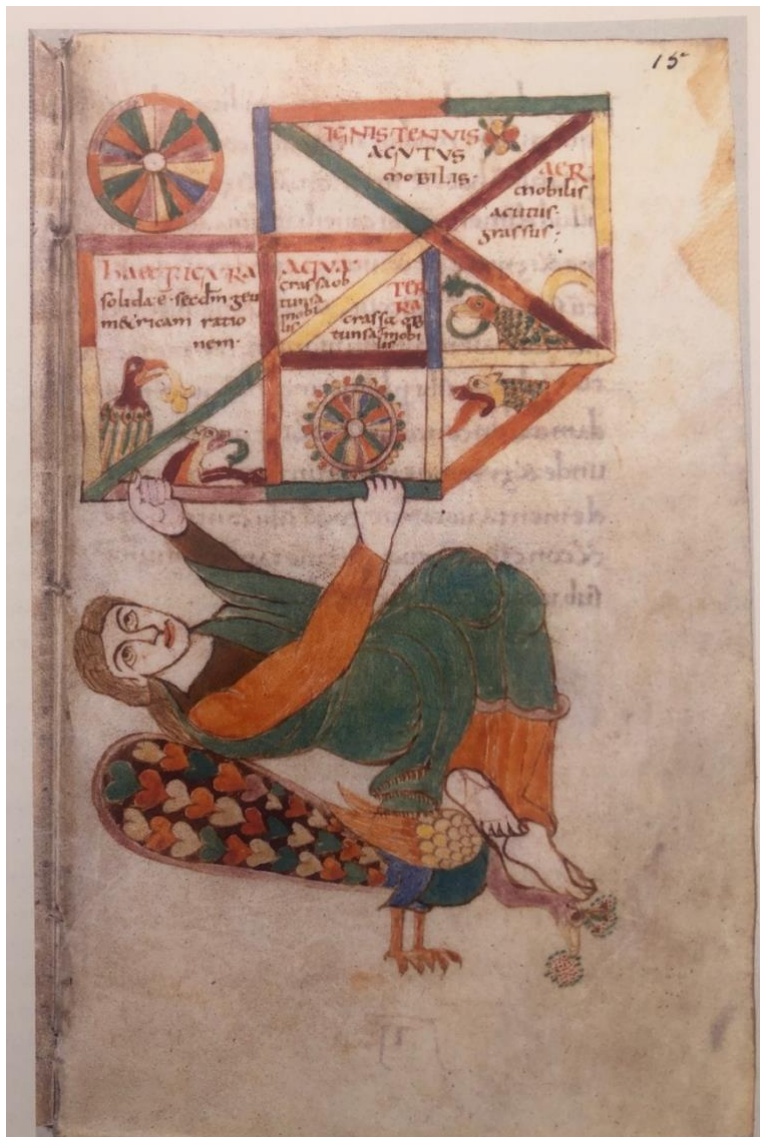 15
IGNIS TENUIS
ACUTUS
MOBILIS·
AER
mobilis
acutus·
grassus·
haec figura
solida ē· secdm̄ geo
metricam ratio
nem·
AQUA
crassa ob
tunsa
mobi
lis
TER
RA
crassa ob
tunsa